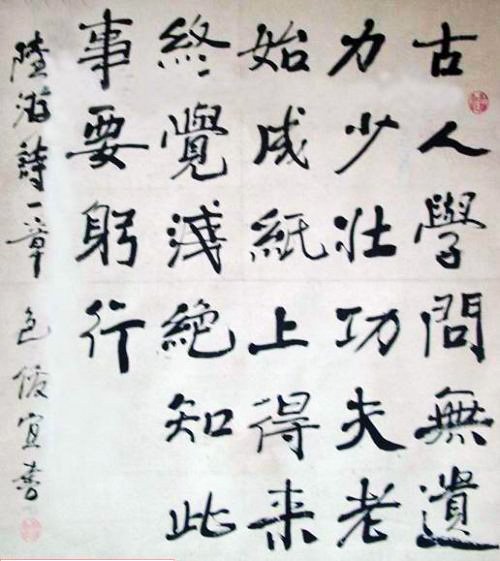 古人學問無遺
力少壮功夫老
始成紙上得来
終覺淺絕知此
事要躬行
陸游詩一章 包俊宜書